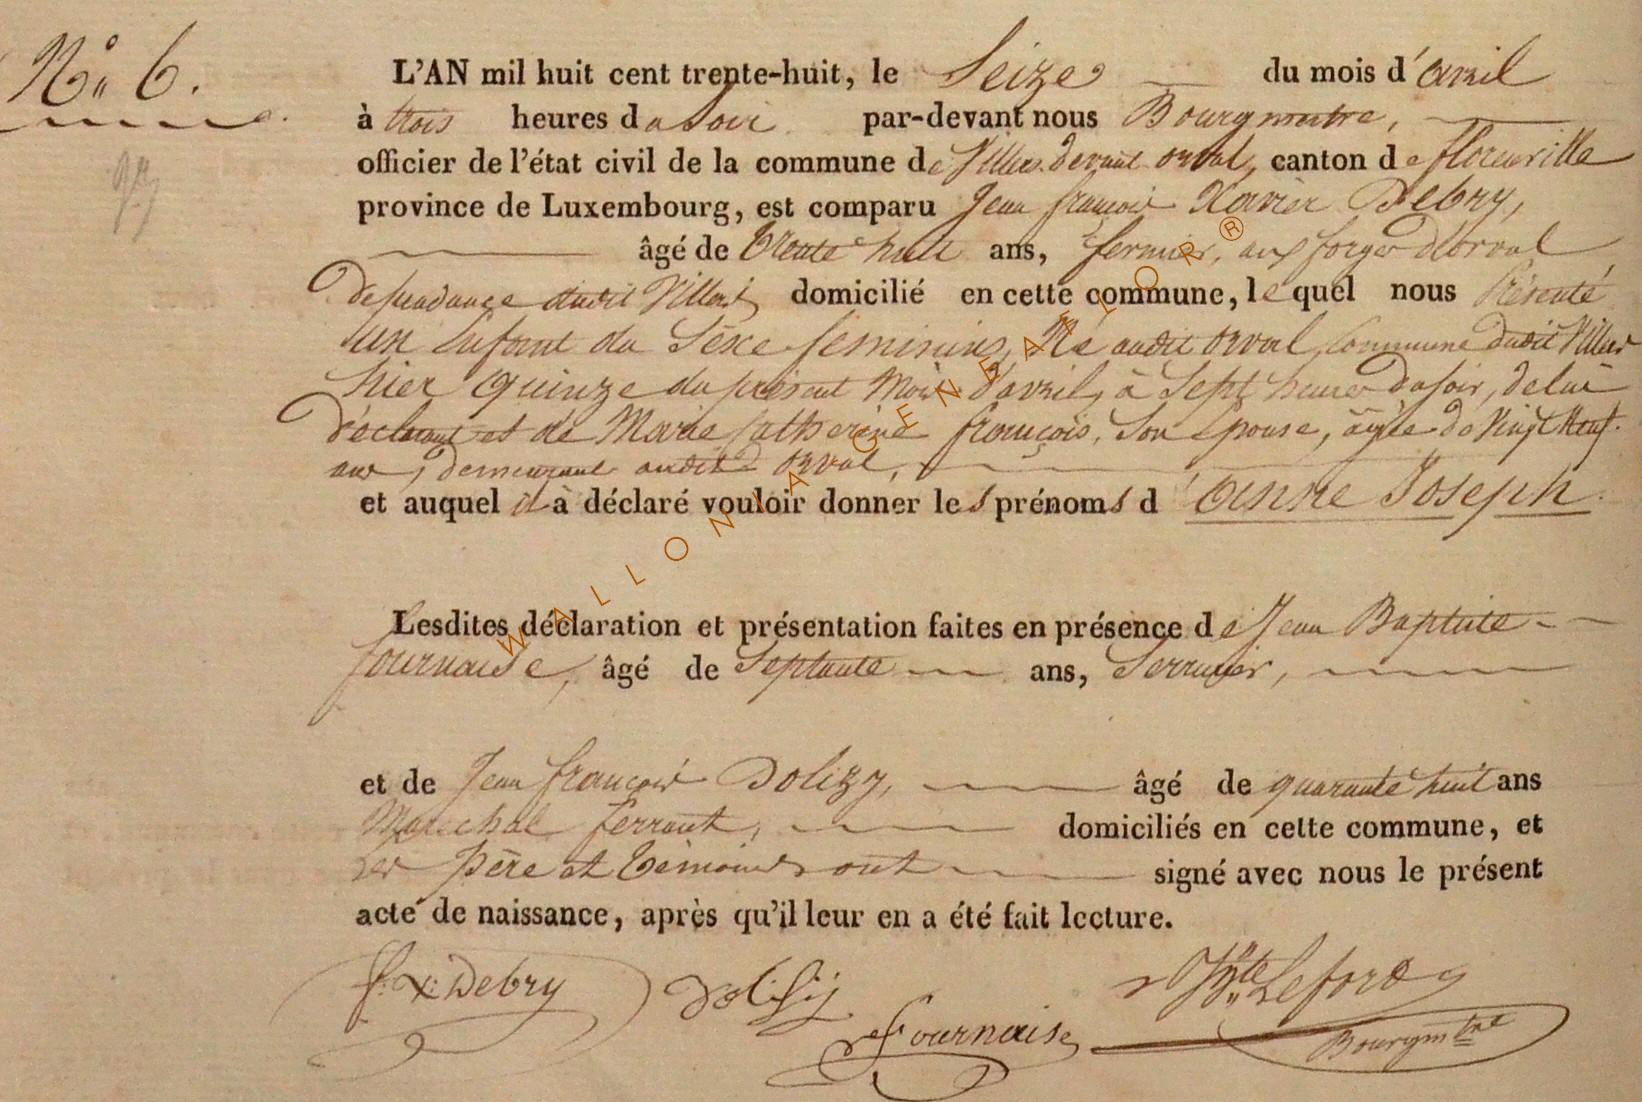 N° 6.
L'AN mil huit cent trente-huit, le Seize du mois d'avril
à trois heures du Soir par-devant nous Bourgmestre,
officier de l'état civil de la commune de Villers devant orval, canton de florenville
province de Luxembourg, est comparu Jean françois Xavier Debry,
âgé de trente huit ans, fermier, aux forges d'orval
dépendance dudit Villers, domicilié en cette commune, lequel nous Présenté
un Enfant du Sèxe féminin, Né audit orval, Commune dudit Villers
hier quinze du présent Mois d'avril, à Sept heures du soir, de lui
déclarant et de Marie Catherine françois, Son Epouse, âgée de Vingt Neuf
ans, demeurant audit orval,
et auquel il à déclaré vouloir donner les prénoms d'Anne Joseph.
Lesdites déclaration et présentation faites en présence de Jean Baptiste
fournaise, âgé de Septante ans, Serrurier,
et de Jean françois Dolizy, âgé de quarante huit ans
Marechal ferrant, domiciliés en cette commune, et
les Père et témoins ont signé avec nous le présent
acte de naissance, après qu'il leur en a été fait lecture.
f. X. Debry Dolisij Jn Bte Leford
Fournaise Bourgmtre